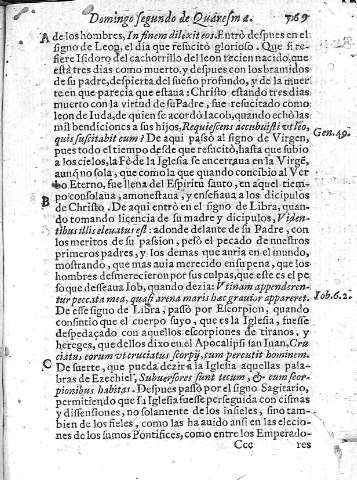 Domingo segundo de Quaresma. 769
A de los hombres, In finem dilexit eos. Entrò despues en el
signo de Leon, el dia que resucitò glorioso. Que si re-
fiere Isidoro del cachorrillo del leon recien nacido, que
està tres dias como muerto, y despues con los bramidos
de su padre, despierta del sueño profundo, y de la muer-
te en que parecia que estaua: Christo estando tres dias
muerto con la virtud de su Padre, fue resucitado como
leon de Iuda, de quien se acordò Iacob, quando echò las
mil bendiciones a sus hijos, Requiescens accubuisti vt leo,
quis suscitabit eum? De aqui passò al signo de Virgen, Gen. 49.
pues todo el tiempo desde que resucitò, hasta que subio
a los cielos, la Fè de la Iglesia se encerraua en la Virgẽ,
aunq̃ no sola, que como la que quando concibio al Ver
bo Eterno, fue llena del Espiritu santo, en aquel tiem-
po consolaua, amonestaua, y enseñaua a los dicipulos
B de Christo. De aqui entrò en el signo de Libra, quan-
do tomando licencia de su madre y dicipulos, Viden-
tibus illis eleuatus est: adonde delante de su Padre, con
los meritos de su passion, pesò el pecado de nuestros
primeros padres, y los demas que auria en el mundo,
mostrando, que mas auia merecido en su pena, que los
hombres desmerecieron por sus culpas, que este es el pe
so que desseaua Iob, quando dezia: Vtinam appenderen-
tur peccata mea, quasi arena maris hac grauior appareret. Iob. 6. 2.
De esse signo de Libra, passò por Escorpion, quando
consintio que el cuerpo suyo, que es la Iglesia, fuesse
despedaçado con aquellos escorpiones de tiranos, y
hereges, que dellos dixo en el Apocalipsi san Iuan, Cru
ciatus eorum vt cruciatus scorpij, cum percutit hominem.
C De suerte, que pueda dezir a la Iglesia aquellas pala-
bras de Ezechiel, Subuersores sunt tecum, & cum scor-
pionibus habitas. Despues passò por el signo Sagitario,
permitiendo que su Iglesia fuesse perseguida con cismas
y dissensiones, no solamente de los infieles, sino tam-
bien de los fieles, como las ha auido ansi en las elecio-
nes de los sumos Pontifices, como entre los Emperado-
Ccc res